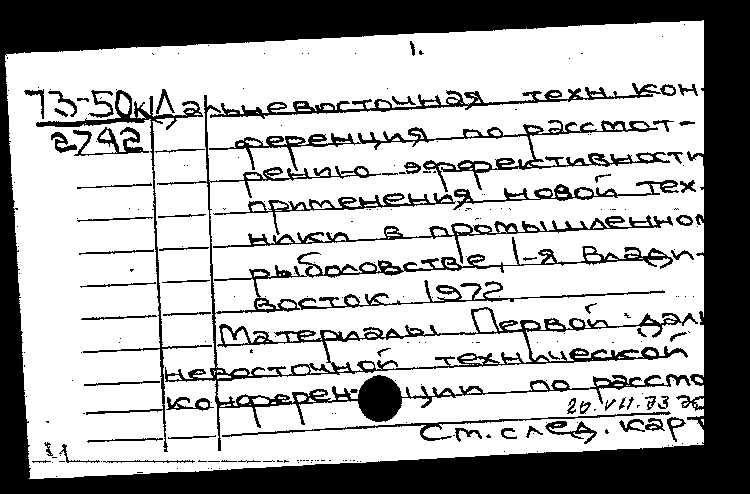 1.
73-50к Дальневосточная техн. кон-
2742 ференция по рассмот-
рению эффективности
применения новой тех-
ники в промышленном
рыболовстве, 1-я. Влади-
восток. 1972.
Материалы Первой даль
невосточной технической
конферен ции по рассмо
26.VII.73
См. след. карт